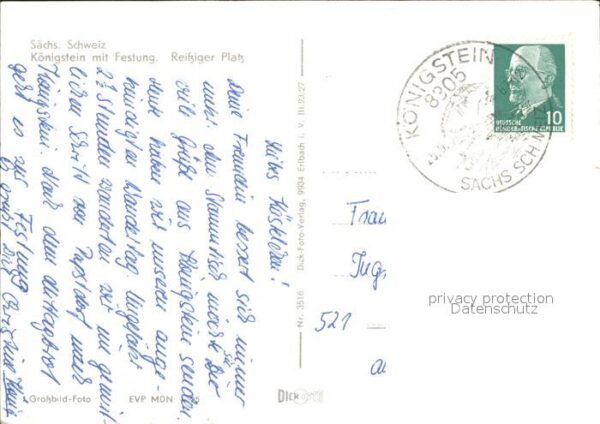 Sächs. Schweiz
Königstein mit Festung. Reißiger Platz
Liebes
Deine Freundin bessert sich immer
mehr. Am Stammtisch möcht sie Dir
viele Grüße aus Königstein senden.
Heute haben wir unseren ange-
kündigten Wandertag. Ungefähr
2½ Stunden wanderten wir im gemüt-
lichen Schritt von Papstdorf nach
Königstein. Nach dem Mittagbrot
geht es zur Festung.
Es grüßt Dich
Großbild-Foto
EVP MDN
Nr. 3516 Dick-Foto-Verlag, 9934 Erlbach i. V. III-23-27
DICK
KÖNIGSTEIN
8305
SÄCHS SCHWEIZ
DEUTSCHE
DEMOKRATISCHE REPUBLIK
10
Frau
521
privacy protection
Datenschutz